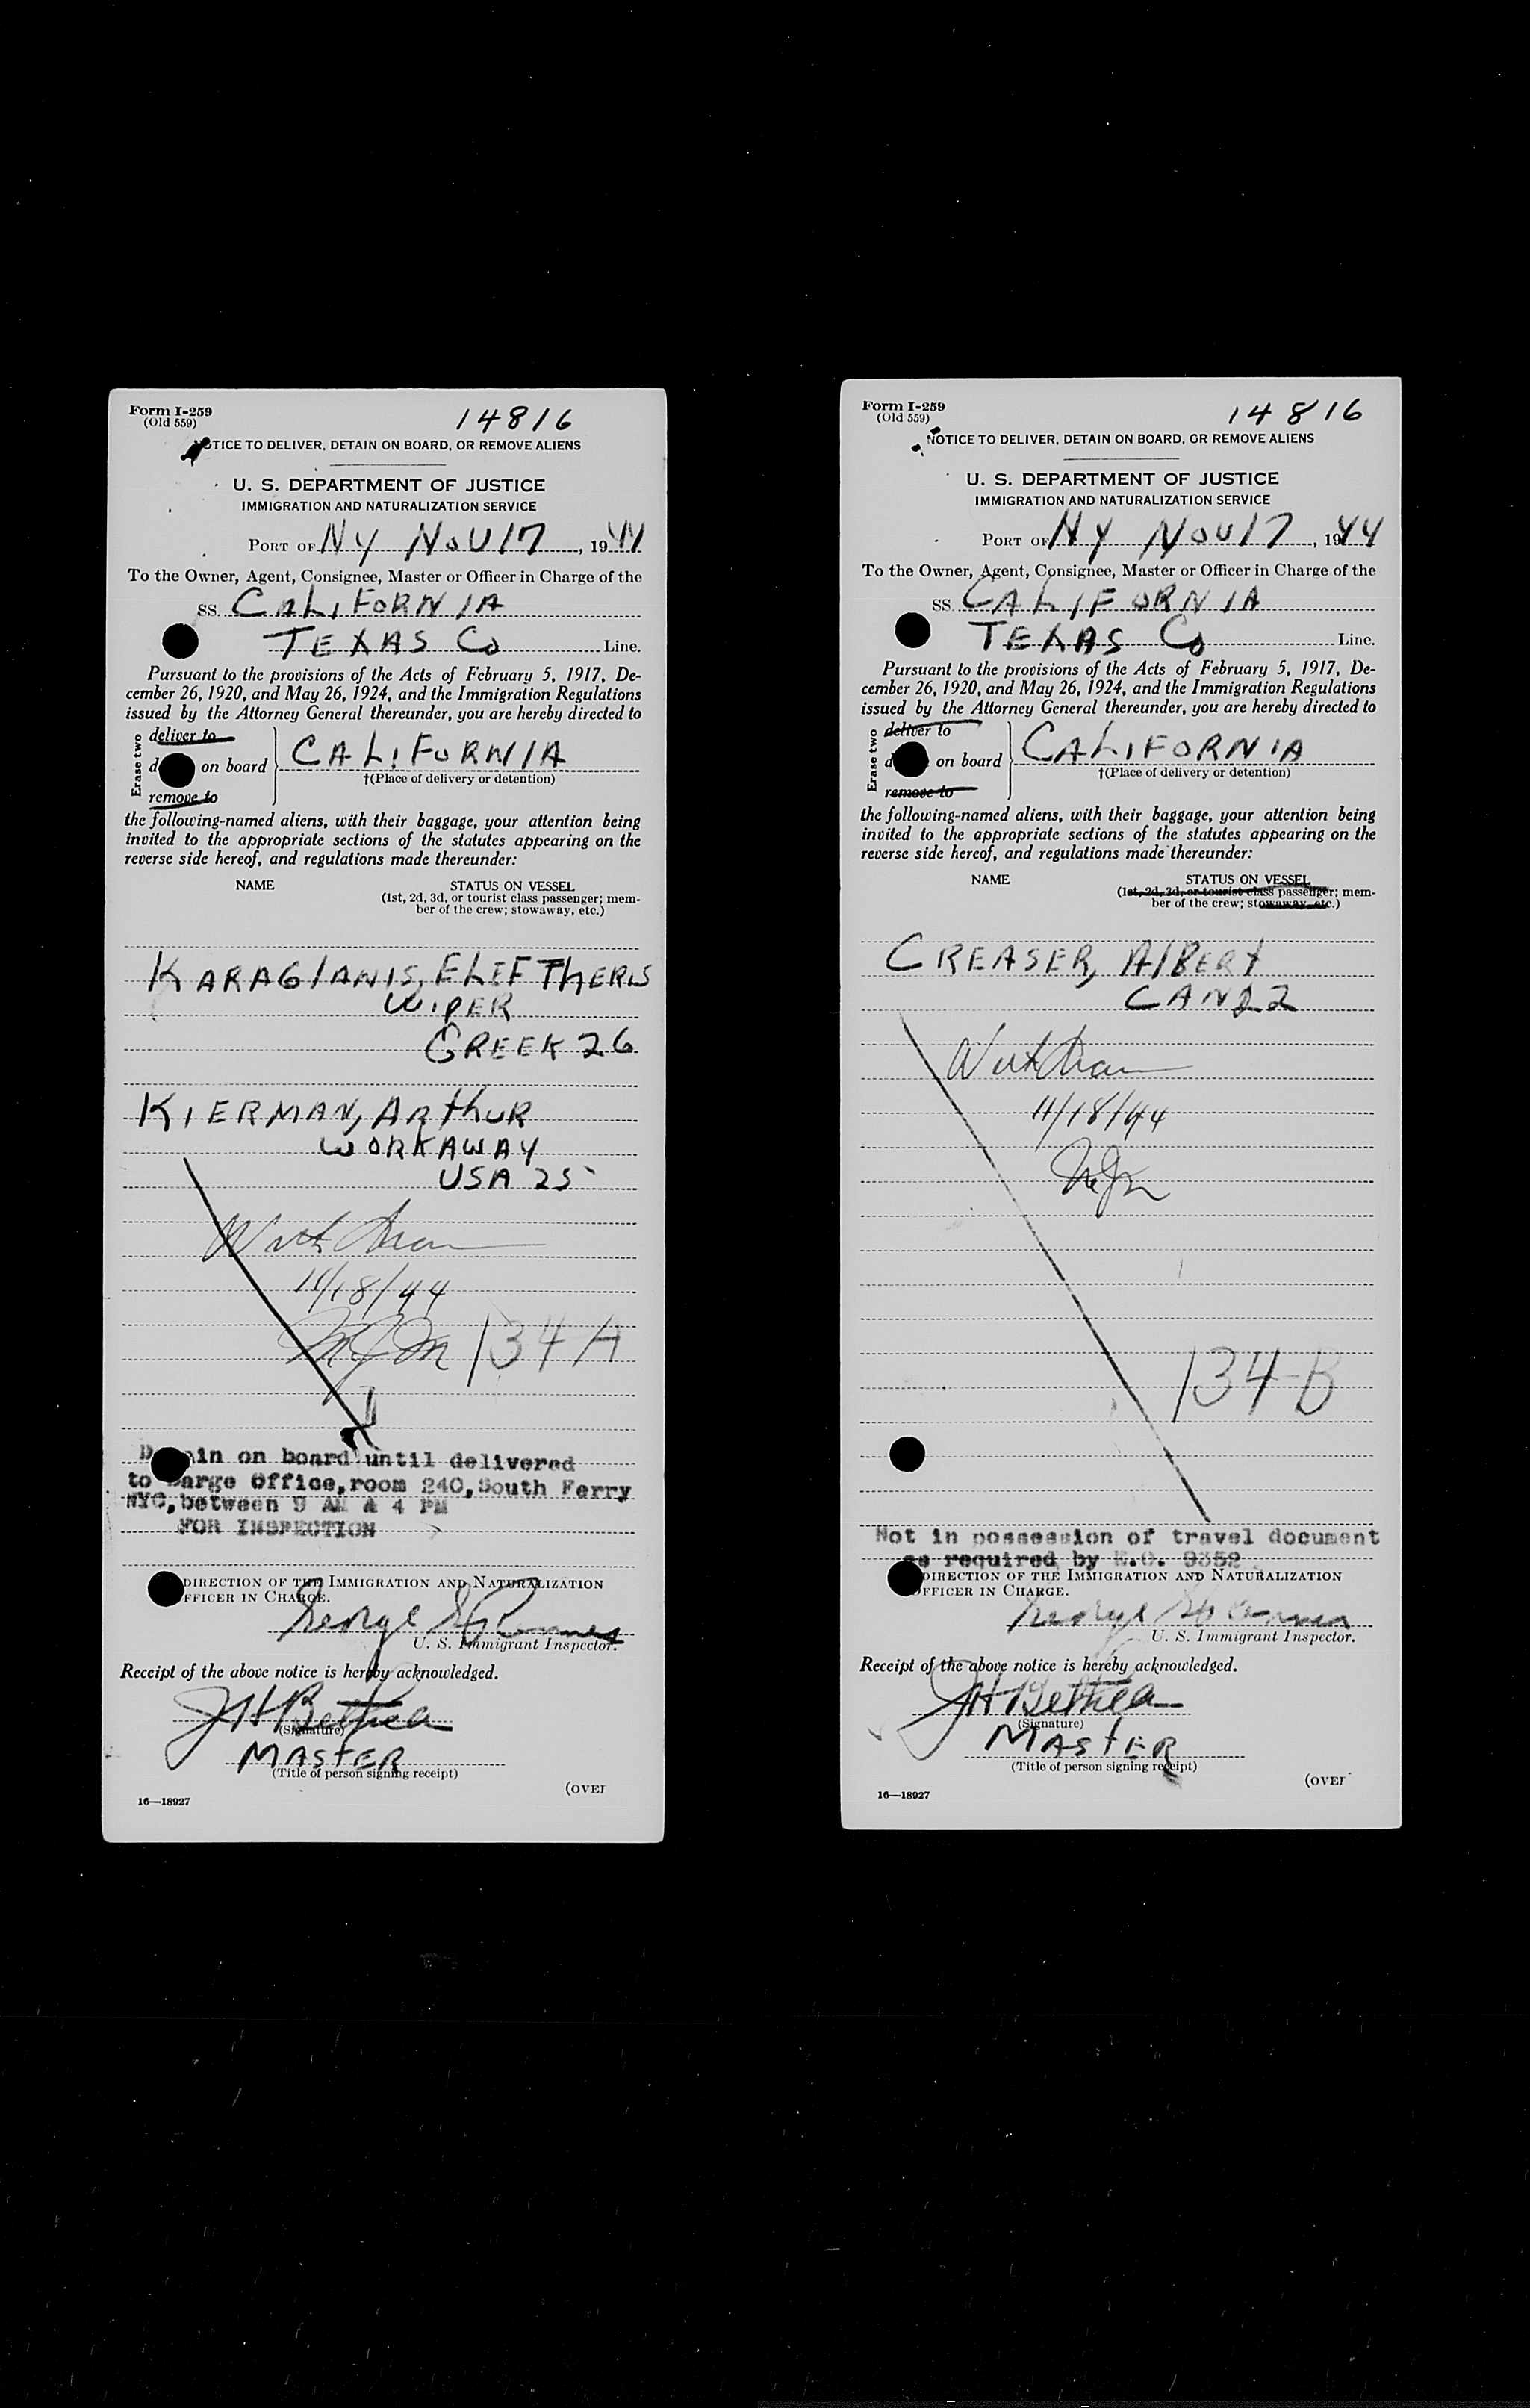 Form I-259
(Old 559)
14816
NOTICE TO DELIVER, DETAIN ON BOARD, OR REMOVE ALIENS
U. S. DEPARTMENT OF JUSTICE
IMMIGRATION AND NATURALIZATION SERVICE
PORT OF NY NOV 17, 1944
To the Owner, Agent, Consignee, Master or Officer in Charge of the
SS. CALIFORNIA
TEXAS Co Line.
Pursuant to the provisions of the Acts of February 5, 1917, De-
cember 26, 1920, and May 26, 1924, and the Immigration Regulations
issued by the Attorney General thereunder, you are hereby directed to
Erase two
deliver to
on board
remove to
CALIFORNIA
†(Place of delivery or detention)
the following-named aliens, with their baggage, your attention being
invited to the appropriate sections of the statutes appearing on the
reverse side hereof, and regulations made thereunder:
NAME
STATUS ON VESSEL
(1st, 2d, 3d, or tourist class passenger; mem-
ber of the crew; stowaway, etc.)
KARAGIANIS,
WIPER
GREEK 26
KIERMAN, ARthUR
WORKAWAY
USA 25
11/18/44
134 A
Detain on board until delivered
to Barge Office, room 240, South Ferry
NYC, between 9 AM & 4 PM
FOR INSPECTION
DIRECTION OF THE IMMIGRATION AND NATURALIZATION
OFFICER IN CHARGE.
George
U. S. Immigrant Inspector.
Receipt of the above notice is hereby acknowledged.
JH Bethea
(Signature)
MASTER
(Title of person signing receipt)
(OVER
16—18927
Form I-259
(Old 559)
14816
NOTICE TO DELIVER, DETAIN ON BOARD, OR REMOVE ALIENS
U. S. DEPARTMENT OF JUSTICE
IMMIGRATION AND NATURALIZATION SERVICE
PORT OF NY NOV 17, 1944
To the Owner, Agent, Consignee, Master or Officer in Charge of the
SS. CALIFORNIA
TEXAS Co Line.
Pursuant to the provisions of the Acts of February 5, 1917, De-
cember 26, 1920, and May 26, 1924, and the Immigration Regulations
issued by the Attorney General thereunder, you are hereby directed to
Erase two
deliver to
on board
remove to
CALIFORNIA
†(Place of delivery or detention)
the following-named aliens, with their baggage, your attention being
invited to the appropriate sections of the statutes appearing on the
reverse side hereof, and regulations made thereunder:
NAME
STATUS ON VESSEL
(1st, 2d, 3d, or tourist class passenger; mem-
ber of the crew; stowaway, etc.)
CREASER, AlBERt
CAN 22
11/18/44
134-B
Not in possession of travel document
as required by E.O. 9352
DIRECTION OF THE IMMIGRATION AND NATURALIZATION
OFFICER IN CHARGE.
George
U. S. Immigrant Inspector.
Receipt of the above notice is hereby acknowledged.
JH Bethea
(Signature)
MAStER
(Title of person signing receipt)
(OVER
16—18927